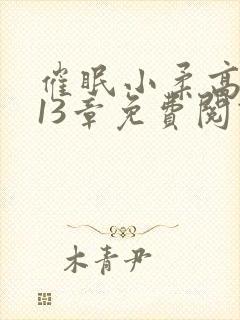 催眠小柔高
13章免費閱
木青尹